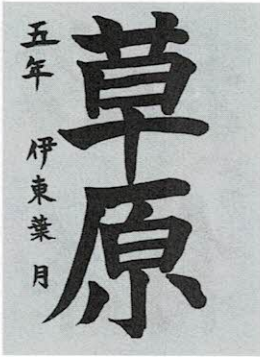 草原
五年 伊東葉月